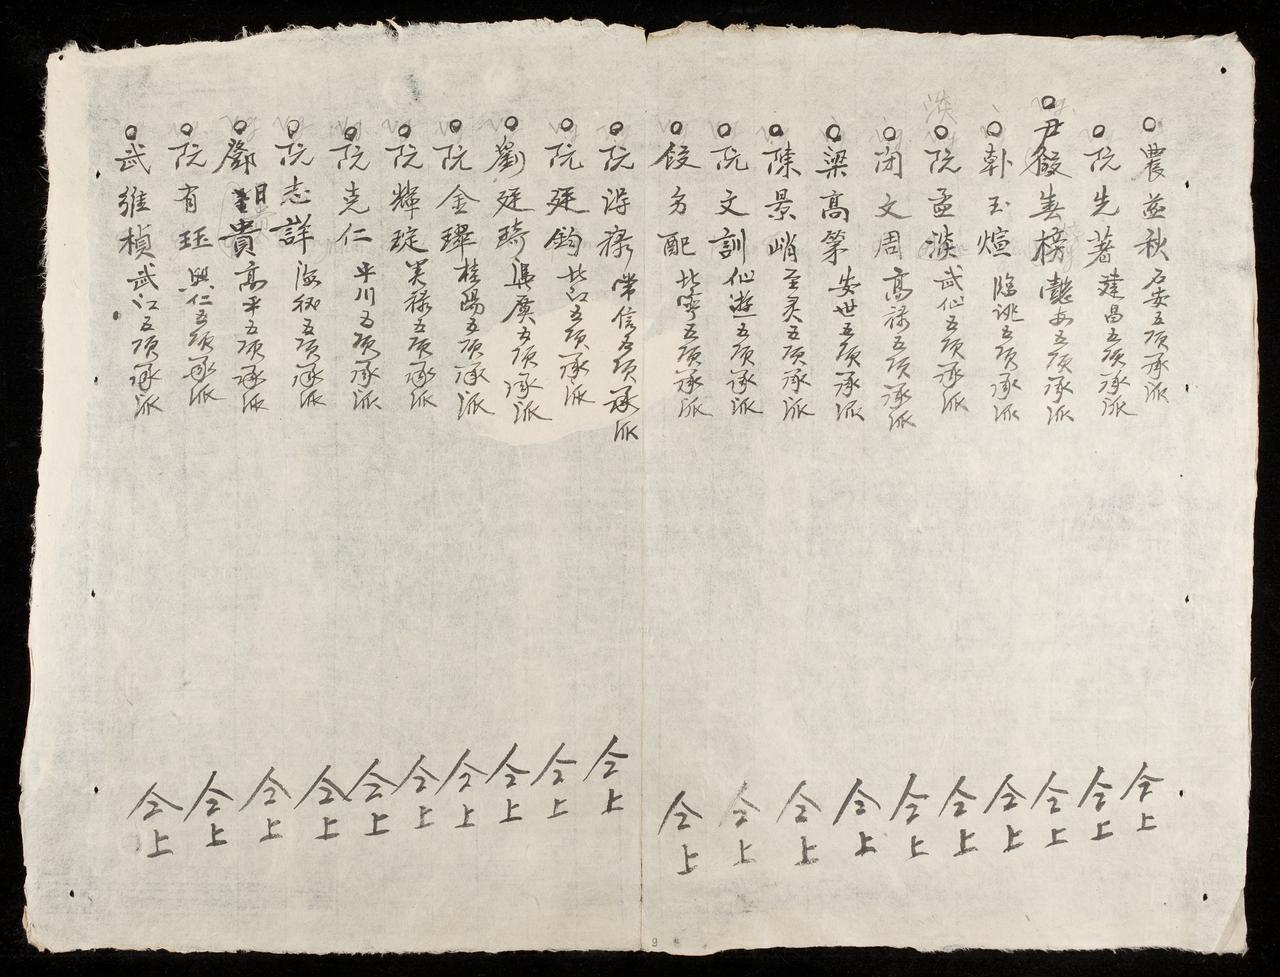 農益秋 石安五項承派 仝上
阮先著 建昌五項承派 仝上
尹段春榜 懿安五項承派 仝上
韩玉煊 臨洮五項承派 仝上
阮孟淡 武仙五項承派 仝上
闭文周 高禄五項承派 仝上
梁高第 安世五項承派 仝上
陳景峭 至灵五項承派 仝上
阮文訓 仙遊五項承派 仝上
段多配 北寧五項承派 仝上
阮得禄 常信五項承派 仝上
阮廷鈞 北江五項承派 仝上
劉廷琦 五項承派 仝上
阮金瑋 桂陽五項承派 仝上
阮輝琔 美禄五項承派 仝上
阮克仁 平川五項承派 仝上
阮志詳 海五項承派 仝上
鄧日貴 高平五項承派 仝上
阮有珏 興仁五項承派 仝上
武維楨 武江五項承派 仝上
9